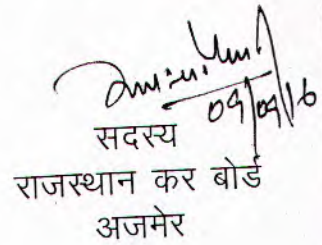 09/09/16
सदस्य
राजस्थान कर बोर्ड
अजमेर